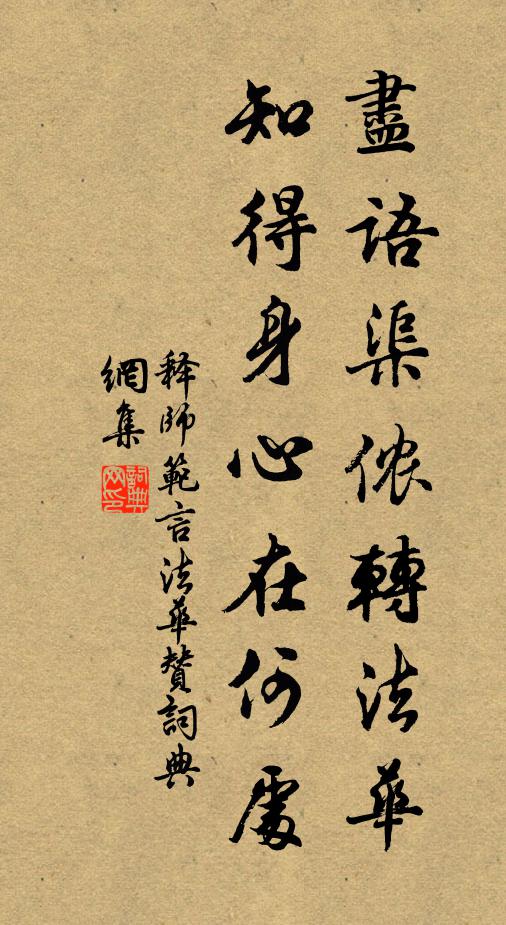 盡語渠儂轉法華
知得身心在何處
释師範言法華贊詞典
網集
詞典網印